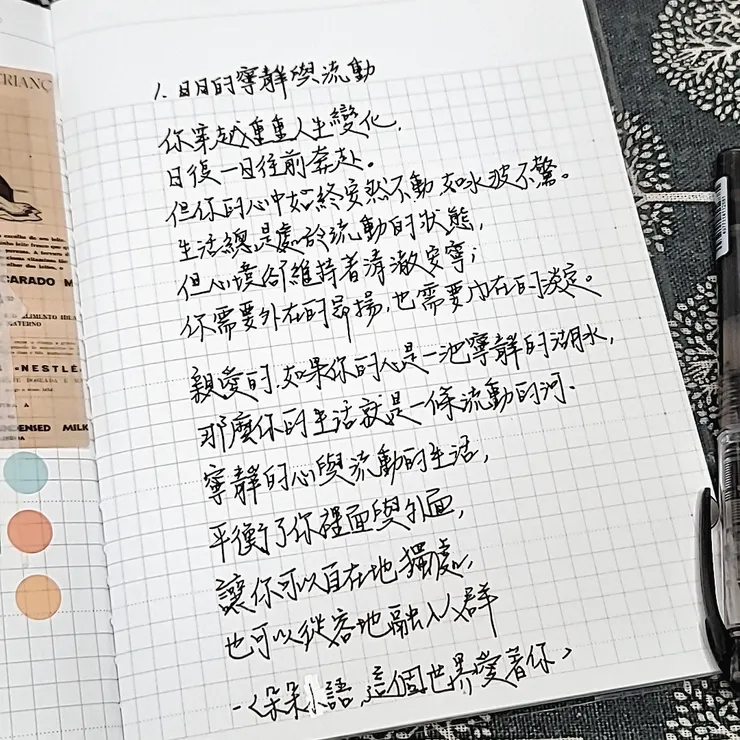 TRIANG
CARADO M
«NESTLÉ
CONDENSED MILK
1. 日日的寧靜與流動
你穿越重重人生變化,
日復一日往前奔赴。
但你的心中始終安然不動如水波不驚。
生活總是處於流動的狀態,
但心境卻維持著清澈安寧;
你需要外在的昂揚,也需要內在的淡定。
親愛的,如果你的心是一池寧靜的湖水,
那麼你的生活就是一條流動的河、
寧靜的心與流動的生活,
平衡了你裡面與外面,
讓你可以自在地獨處,
也可以從容地融入人群
-〈朵朵小語,這個世界愛著你〉